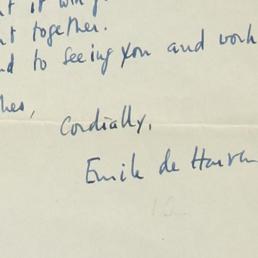 it will
together.
to seeing you and work
Cordially,
Emile de Harven